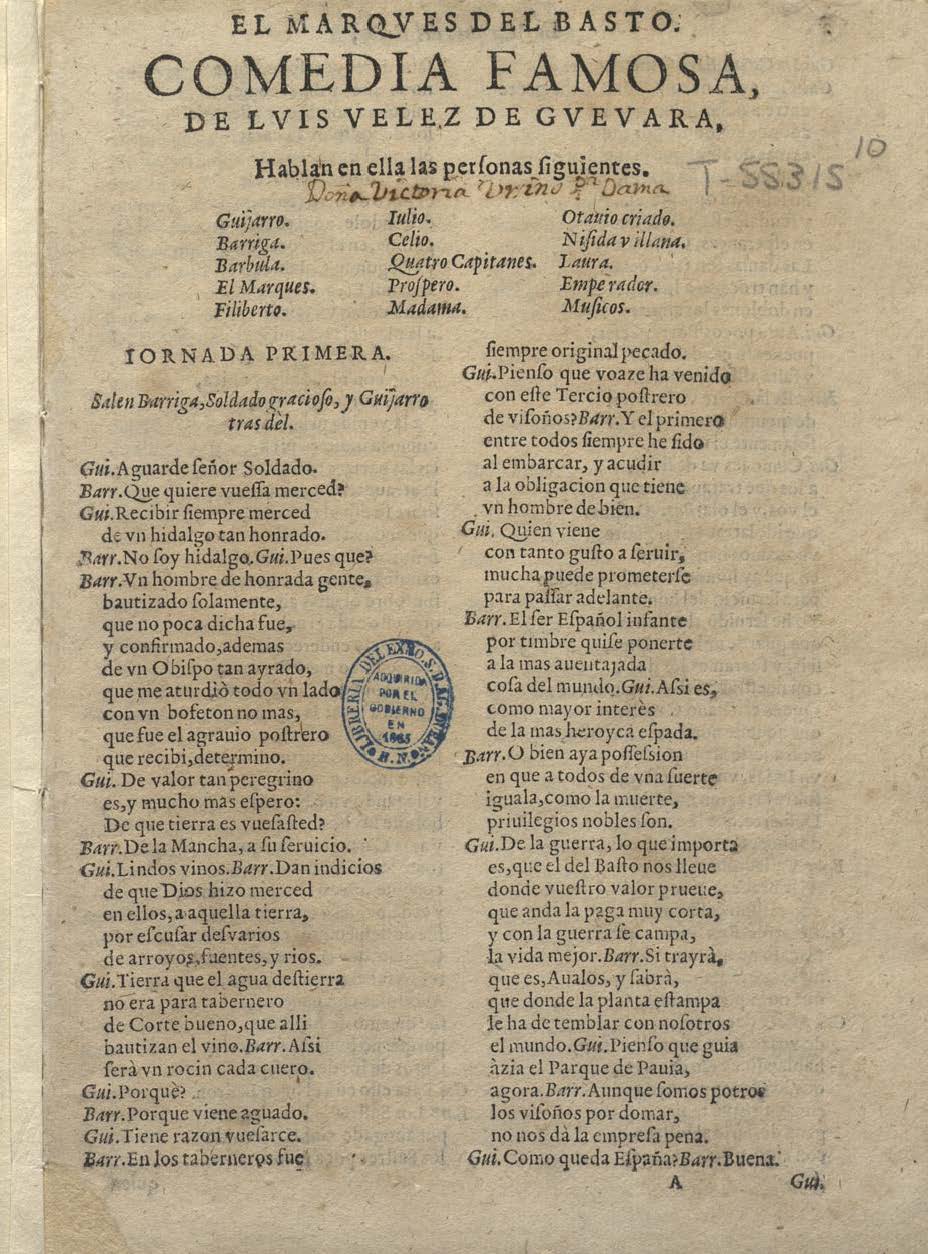 EL MARQVES DEL BASTO.
COMEDIA FAMOSA,
DE LVIS VELEZ DE GVEVARA,
Hablan en ella las perſonas ſiguientes.
T-55315
10
Doña Victoria Dama
Guijarro.
Barriga.
Barbula.
El Marques.
Filiberto.
Iulio.
Celio.
Quatro Capitanes.
Proſpero.
Madama.
Otauio criado.
Niſida villana.
Laura.
Emperador.
Muſicos.
IORNADA PRIMERA.
Salen Barriga, Soldado gracioſo, y Guijarro
tras dèl.
Gui. Aguarde ſeñor Soldado.
Barr. Que quiere vueſſa merced?
Gui. Recibir ſiempre merced
de vn hidalgo tan honrado.
Barr. No ſoy hidalgo. Gui. Pues que?
Barr. Vn hombre de honrada gente,
bautizado ſolamente,
que no poca dicha fue,
y confirmado, ademas
de vn Obiſpo tan ayrado,
que me aturdiò todo vn lado
con vn bofeton no mas,
que fue el agrauio poſtrero
que recibi, determino.
Gui. De valor tan peregrino
es, y mucho mas eſpero:
De que tierra es vueſaſted?
Barr. De la Mancha, a ſu ſeruicio.
Gui. Lindos vinos. Barr. Dan indicios
de que Dios hizo merced
en ellos, a aquella tierra,
por eſcuſar deſvarios
de arroyos, fuentes, y rios.
Gui. Tierra que el agua deſtierra
no era para tabernero
de Corte bueno, que alli
bautizan el vino. Barr. Aſsi
ſerà vn rocin cada cuero.
Gui. Porquè?
Barr. Porque viene aguado.
Gui. Tiene razon vueſarce.
Barr. En los taberneros fue
ſiempre original pecado.
Gui. Pienſo que voaze ha venido
con eſte Tercio poſtrero
de viſoños? Barr. Y el primero
entre todos ſiempre he ſido
al embarcar, y acudir
a la obligacion que tiene
vn hombre de bien.
Gui. Quien viene
con tanto guſto a ſeruir,
mucha puede prometerſe
para paſſar adelante.
Barr. El ſer Eſpañol infante
por timbre quiſe ponerte
a la mas auentajada
coſa del mundo. Gui. Aſsi es,
como mayor interès
de la mas heroyca eſpada.
Barr. O bien aya poſſeſsion
en que a todos de vna ſuerte
iguala, como la muerte,
priuilegios nobles ſon.
Gui. De la guerra, lo que importa
es, que el del Baſto nos lleue
donde vueſtro valor prueue,
que anda la paga muy corta,
y con la guerra ſe campa,
la vida mejor. Barr. Si trayrà,
que es, Aualos, y ſabrà,
que donde la planta eſtampa
le ha de temblar con noſotros
el mundo. Gui. Pienſo que guia
àzia el Parque de Pauia,
agora. Barr. Aunque ſomos potros
los viſoños por domar,
no nos dà la empreſa pena.
Gui. Como queda Eſpaña? Barr. Buena.
A
Gui.
LIBRERIA DEL EXMO. S. D. AG. DURAN
ADQUIRIDA
POR EL
GOBIERNO
EN
1863
B. N.